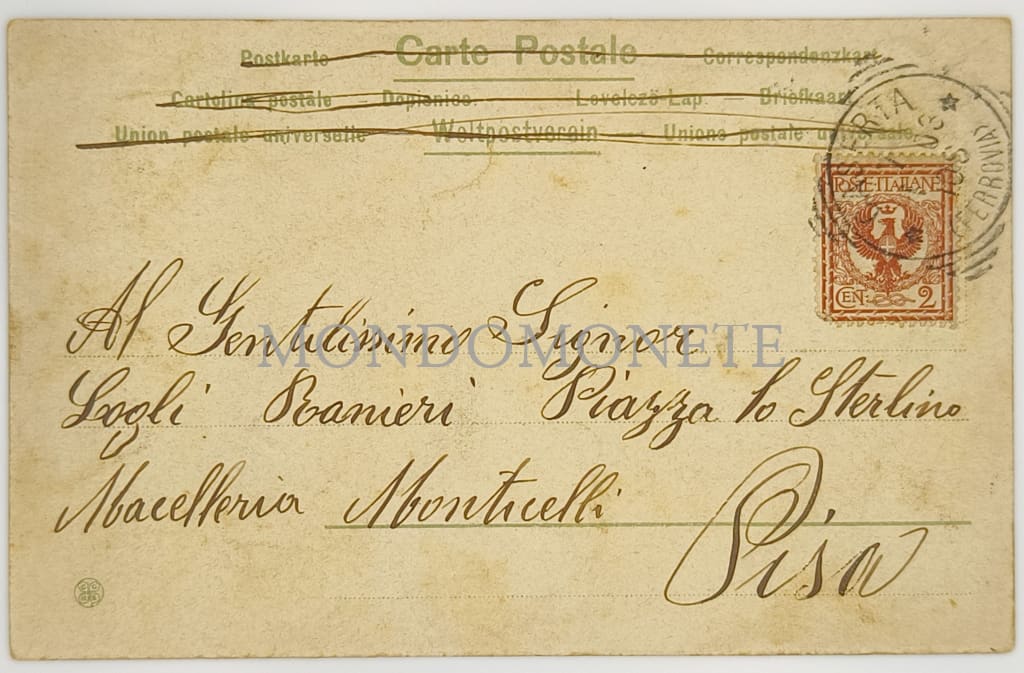 Postkarte Carte Postale Correspondenzkart
Cartolina postale – Dopisnice. Levelezö-Lap. – Briefkaart
Union postale universelle Weltpostverein – Unione postale universale
POSTE·ITALIANE
CEN: 2
(FERROVIA)
Al Gentilissimo Signor
Logli Ranieri Piazza lo Sterlino
Macelleria Monticelli
Pisa
MONDOMONETE